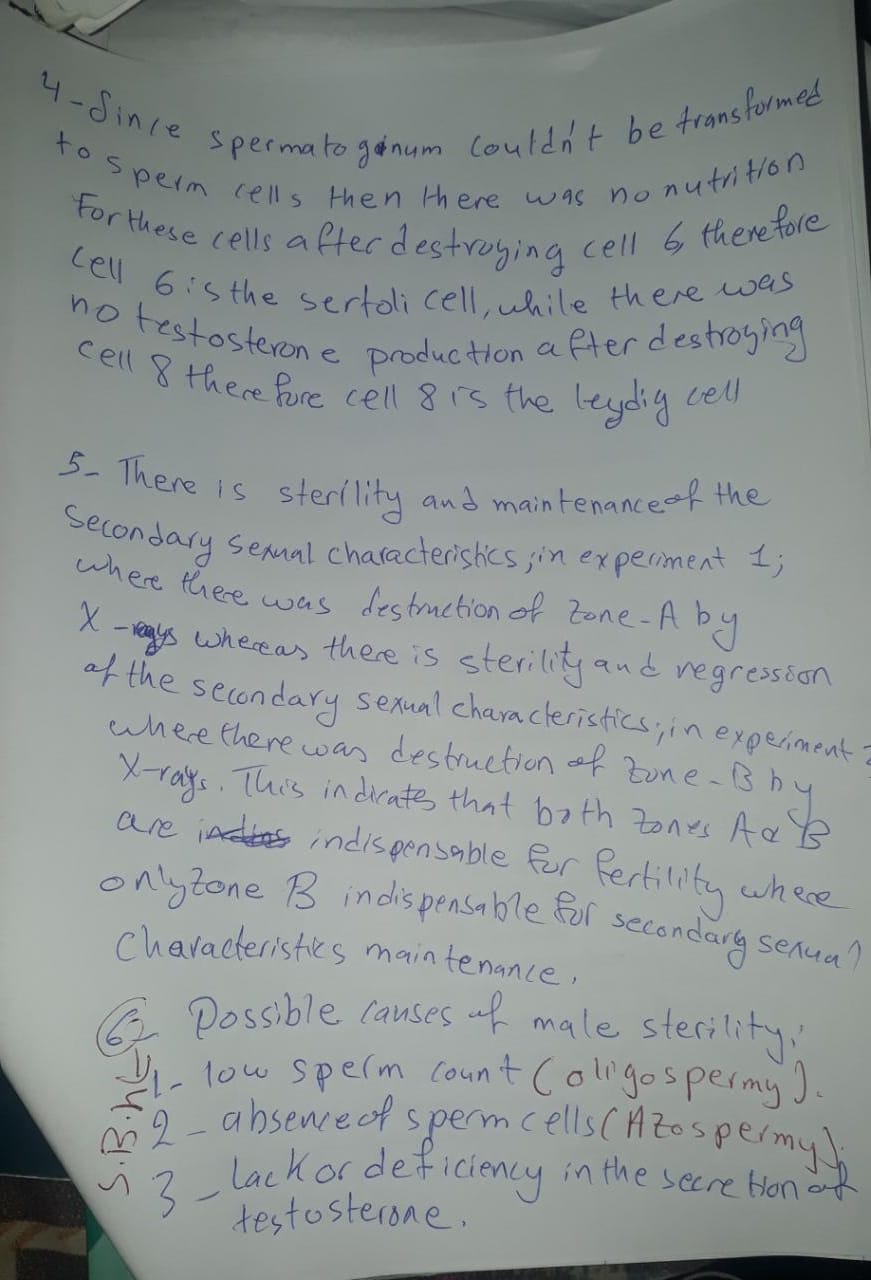 4-Since spermatogonum couldn't be transformed
to sperm cells then there was no nutrition
For these cells after destroying cell 6, therefore
cell 6 is the sertoli cell, while there was
no testosterone production after destroying
cell 8 therefore cell 8 is the leydig cell
5- There is sterility and maintenance of the
Secondary sexual characteristics ; in experiment 1;
where there was destruction of zone-A by
X-rays whereas there is sterility and regression
of the secondary sexual characteristics; in experiment 2
where there was destruction of zone-B by
X-rays. This indicates that both zones A & B
are indispensable for fertility where
only zone B indispensable for secondary sexual
Characteristics maintenance.
6- Possible causes of male sterility:
1- low sperm count (oligospermy).
2- absence of sperm cells (Azospermy).
3- lack or deficiency in the secretion of
testosterone.